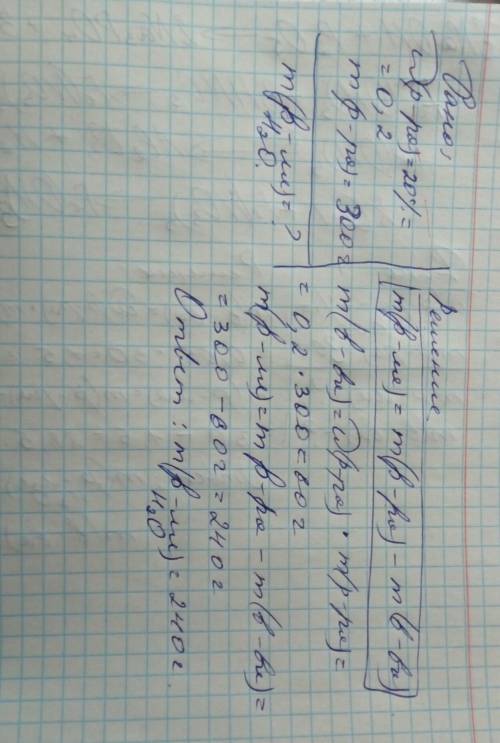 Дано:
ω(р-ра) = 20% =
= 0,2
m(р-ра) = 300 г
m(р-ля) = ?
H₂O.
Решение.
m(р-ля) = m(р-ра) - m(в-ва)
m(в-ва) = ω(р-ра) · m(р-ра) =
= 0,2 · 300 = 60 г
m(р-ля) = m р-ра - m(в-ва) =
= 300 - 60 г = 240 г
Ответ: m(р-ля) = 240 г.
H₂O